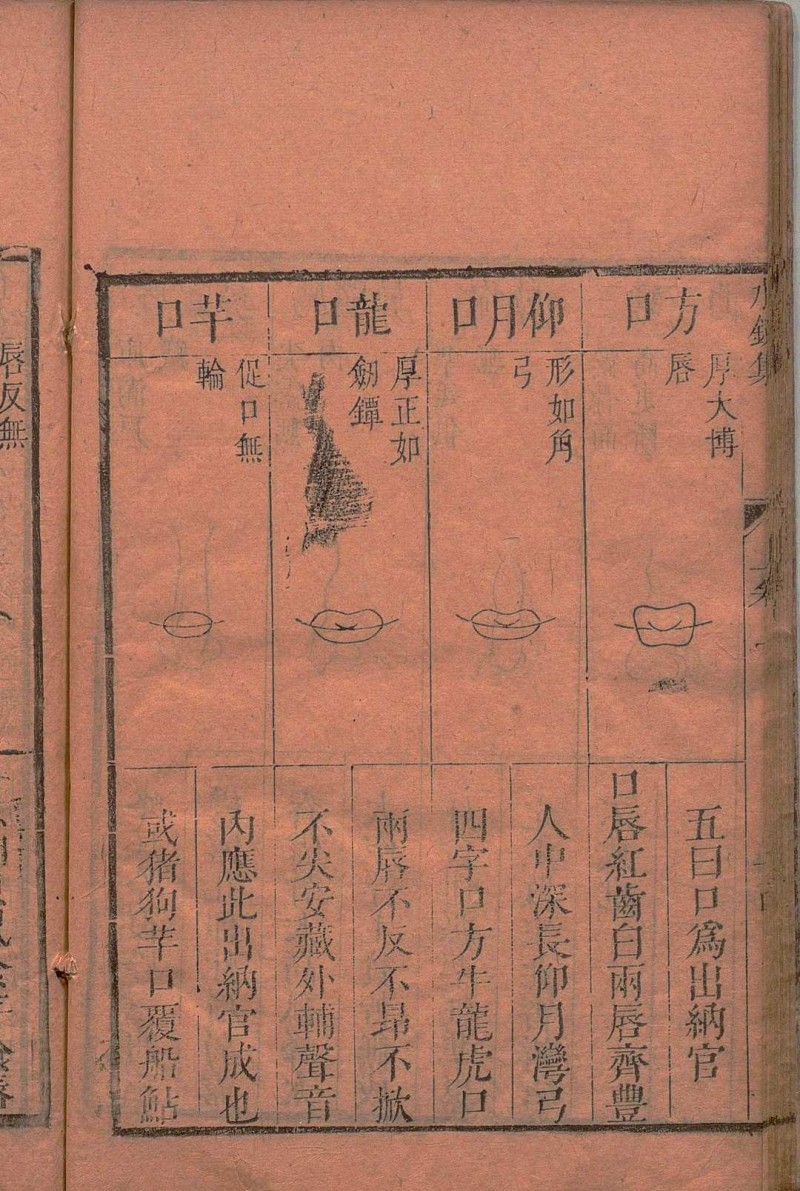 水鏡集
方口
厚大博
唇
仰月口
形如角
弓
龍口
厚正如
劒鐔
芊口
促口無
輪
五曰口爲出納官
口唇紅齒白兩唇齊豐
人中深長仰月灣弓
四字口方牛龍虎口
兩唇不反不昻不掀
不尖安藏外輔聲音
內應此出納官成也
或猪狗芊口覆船鮎
唇反無